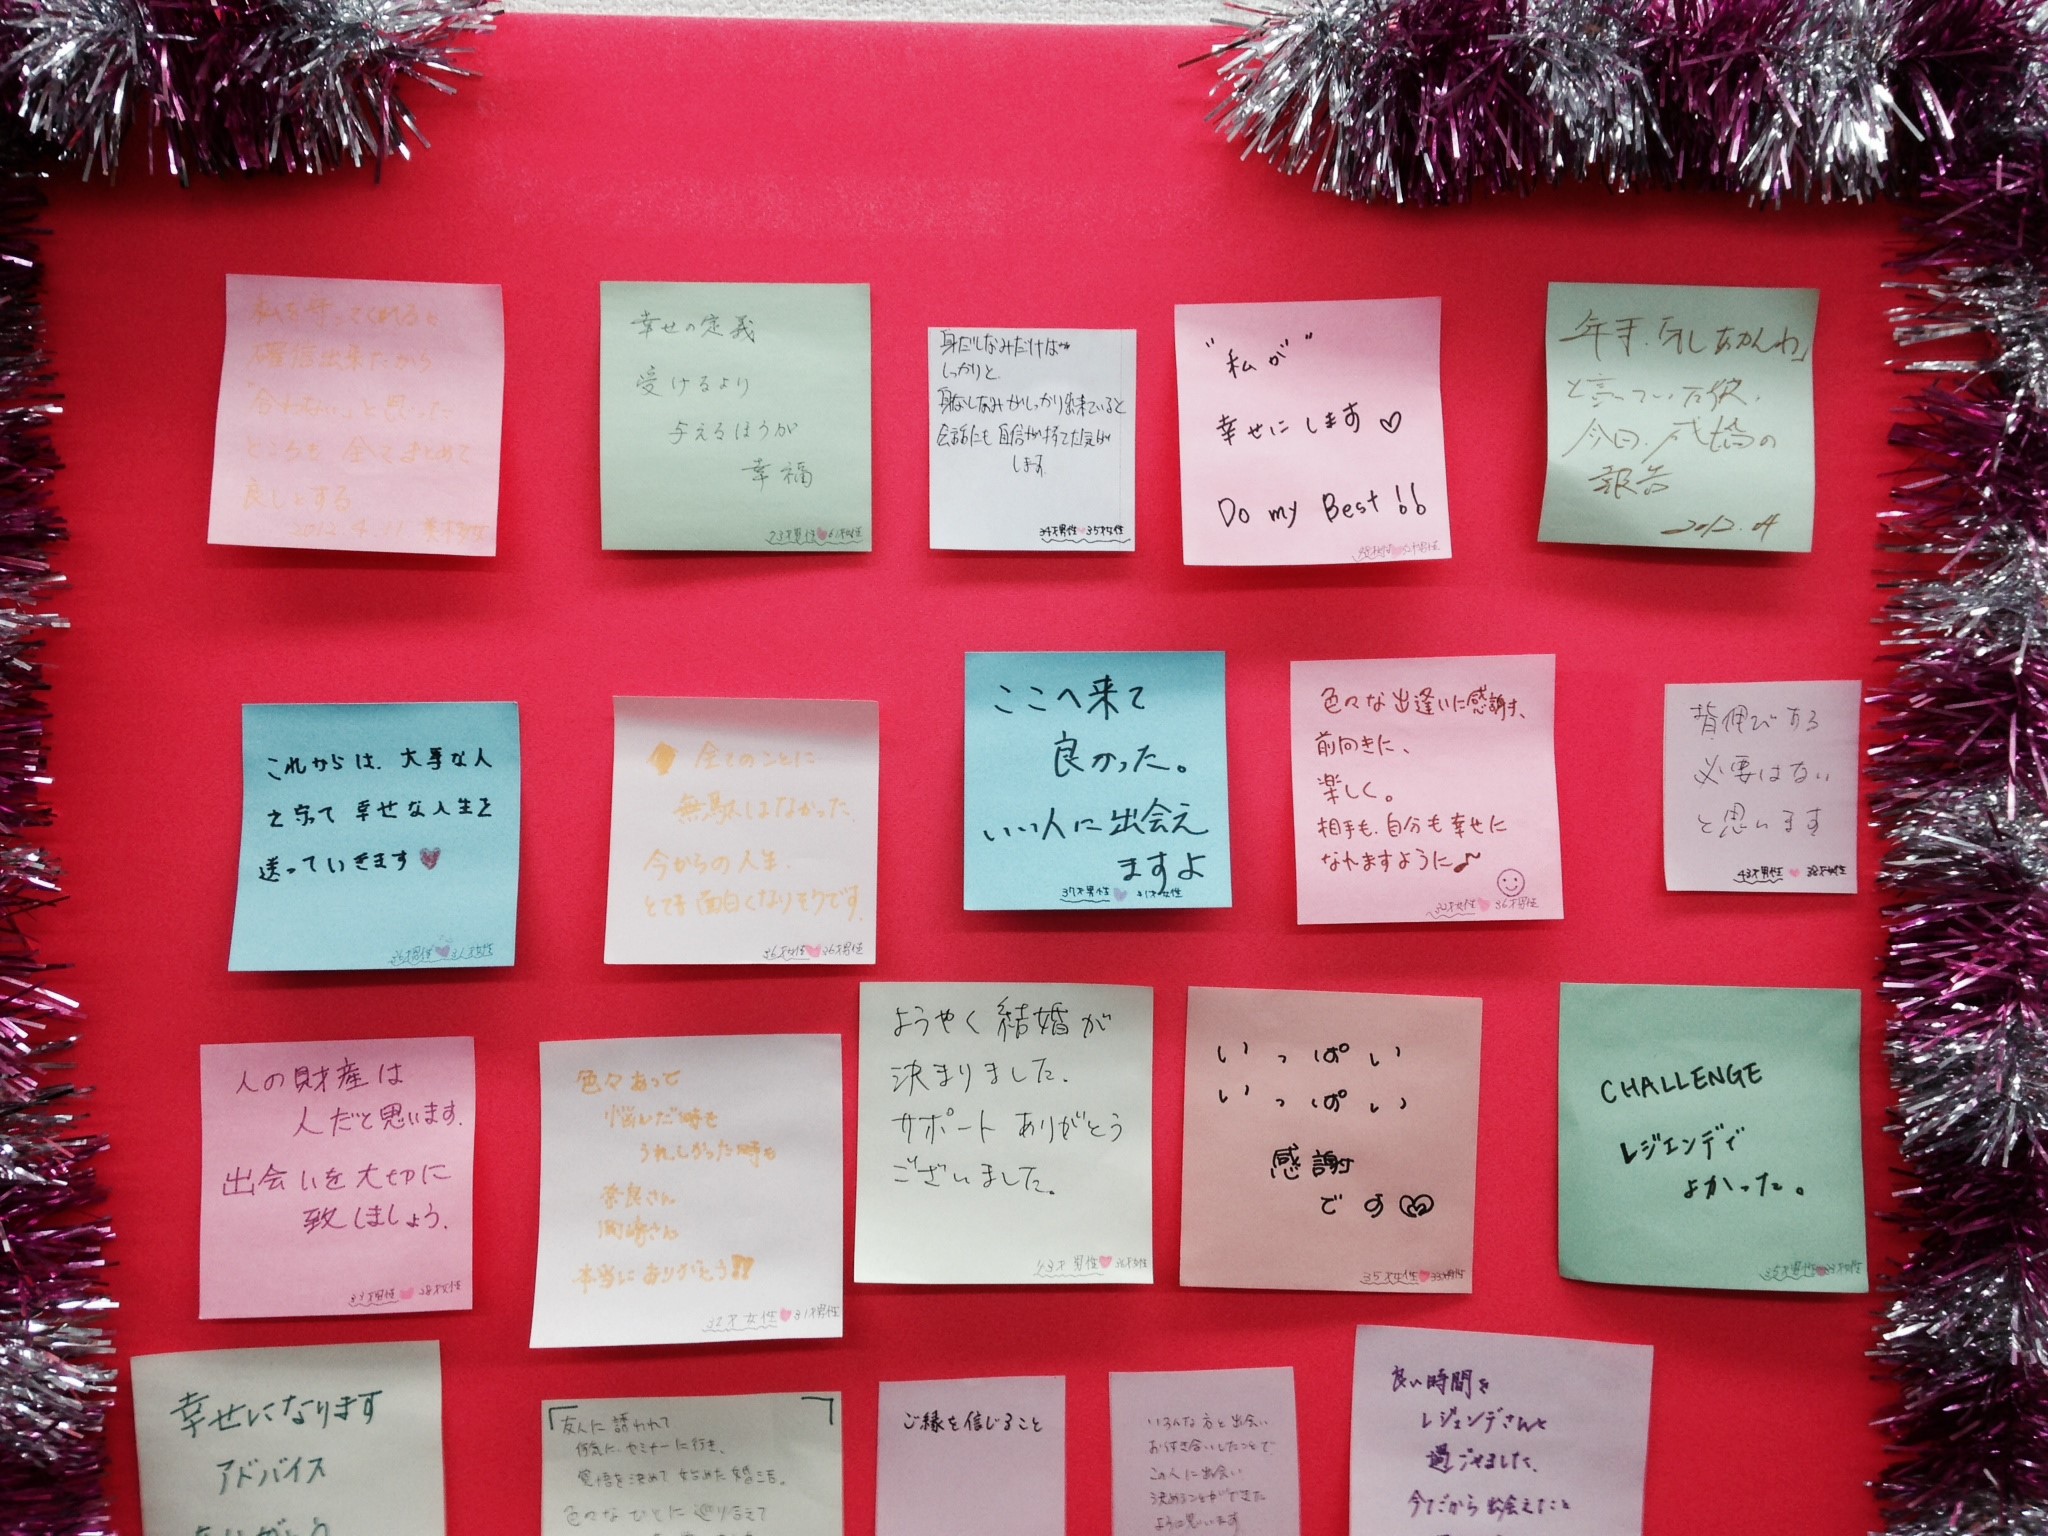 私を守ってくれると
確信出来たから
"合わない"と思った
ところも 全てまとめて
良しとする
2012.4.11
幸せの定義
受けるより
与えるほうが
幸福
23才男性 61才女性
身だしなみだけは
しっかりと
身だしなみがしっかり出来ていると
会話にも自信が持てた気が
します。
34才男性 35才女性
"私が"
幸せにします♡
Do my Best!!
と言っていた
今回、成婚の
報告
2012.04
これからは、大事な人
と 幸せな人生を
送っていきます
全てのことに
無駄はなかった。
今からの人生、
とても面白くなりそうです。
36才女性 36才男性
ここへ来て
良かった。
いい人に出会え
ますよ
37才男性 31才女性
色々な出逢いに感謝を、
前向きに、
楽しく。
相手も、自分も幸せに
なれますように♪
32才女性 36才男性
背伸びする
必要はない
と思います
43才男性 38才女性
人の財産は
人だと思います。
出会いを大切に
致しましょう。
33才男性 28才女性
色々あって
悩んだ時も
うれしかった時も
奈良さん
岡崎さん
本当にありがとう!!
32才女性 31才男性
ようやく結婚が
決まりました。
サポート ありがとう
ございました。
43才男性
いっぱい
いっぱい
感謝
です♡
35才女性 33才男性
CHALLENGE
レジェンデで
よかった。
35才男性
幸せになります
アドバイス
ありがとう
友人に誘われて
何気にセミナーに行き、
覚悟を決めて始めた婚活。
色々なひとに巡り合えて
ご縁を信じること
いろんな方と出会い
お付き合いしたことで、
この人に出会い
決めることができた
ように思います
良い時間を
レジェンデさんと
過ごせました。
今だから出会えたこと